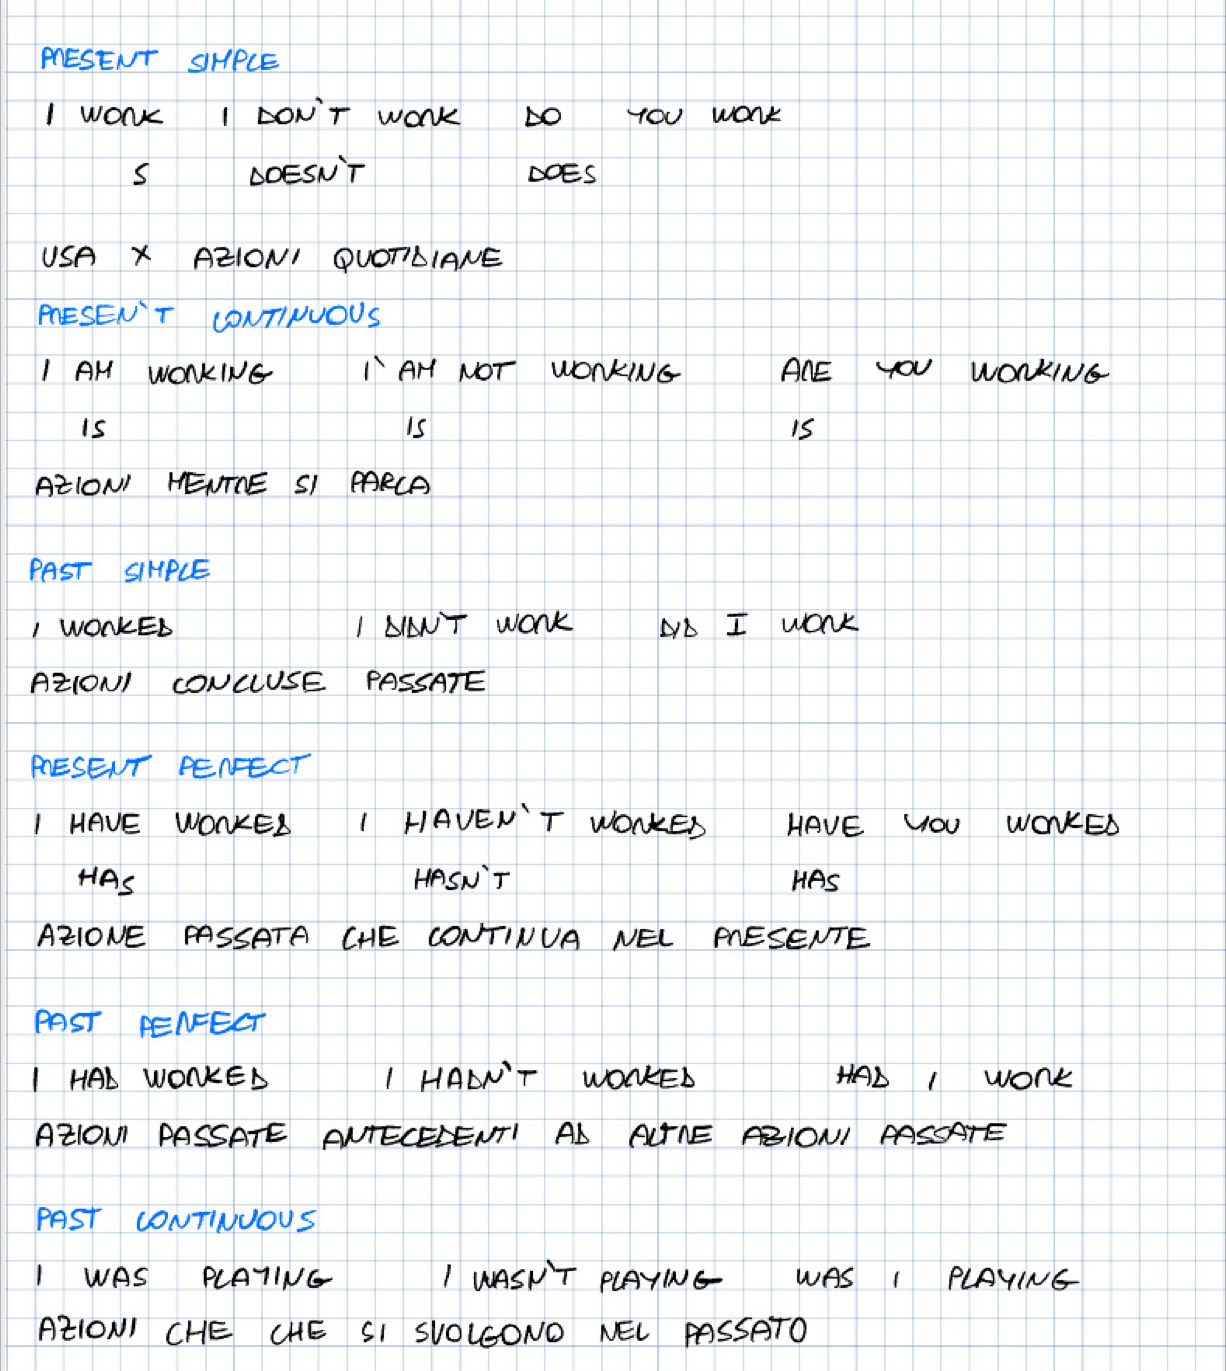 PRESENT SIMPLE
I WORK I DON'T WORK DO YOU WORK
S DOESN'T DOES
USA X AZIONI QUOTIDIANE
PRESEN'T CONTINUOUS
I AM WORKING I' AM NOT WORKING ARE YOU WORKING
IS IS IS
AZIONI MENTRE SI PARLA
PAST SIMPLE
I WORKED I DIDN'T WORK DID I WORK
AZIONI CONCLUSE PASSATE
PRESENT PERFECT
I HAVE WORKED I HAVEN'T WORKED HAVE YOU WORKED
HAS HASN'T HAS
AZIONE PASSATA CHE CONTINUA NEL PRESENTE
PAST PERFECT
I HAD WORKED I HADN'T WORKED HAD I WORK
AZIONI PASSATE ANTECEDENTI AD ALTRE AZIONI PASSATE
PAST CONTINUOUS
I WAS PLAYING I WASN'T PLAYING WAS I PLAYING
AZIONI CHE CHE SI SVOLGONO NEL PASSATO